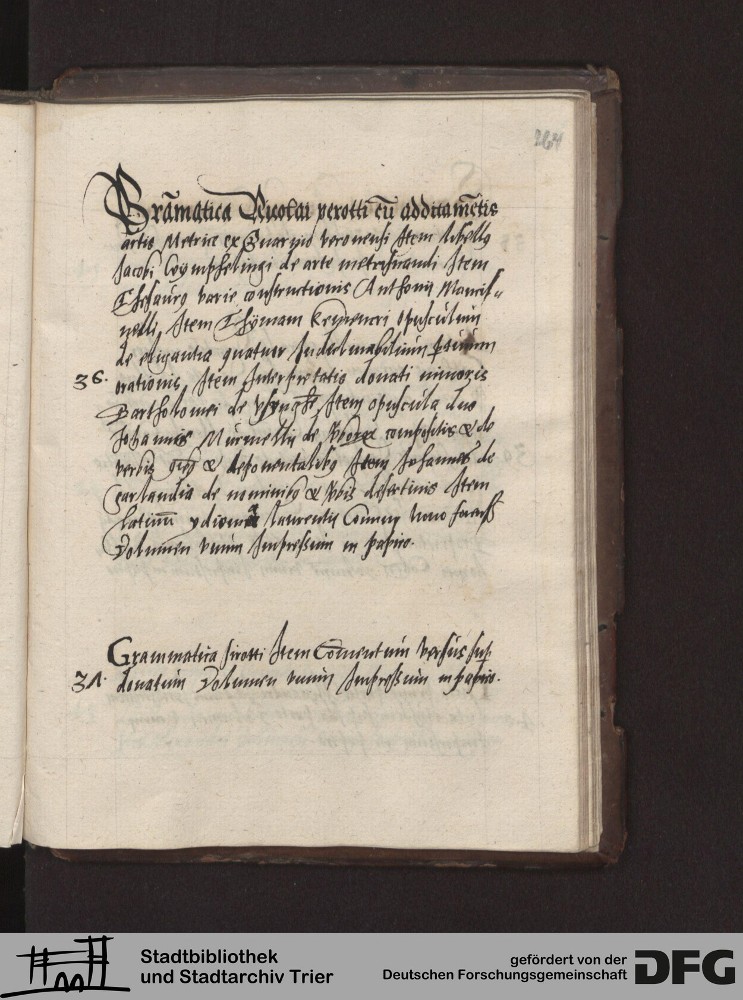 264
Gram̄atica Nicolai perotti cū additam̄etis
artis Metrice ex Guarino veronensi Item libellg
Jacobi Wymphelingi de arte metrificandi Item
Thesaurg varie constructionis Anthonij Manci-
nelli, Item Opusculum
de eligantia quatuor
36. orationis, Item Interpretatio donati minoris
Bartholomei de Item opuscula duo
Johannis Murmellij de compositis & de
verbis & deponentalibg Item Johannes de
Garlandia de & defectiuis Item
latinū ydioma laurentij Coruinj
Volumen vnum Impressum in papiro.
Grammatica Item Com̄entum versus sup
37. donatum Volumen vnum Impressum in papiro.
Stadtbibliothek
und Stadtarchiv Trier
gefördert von der
Deutschen Forschungsgemeinschaft
DFG